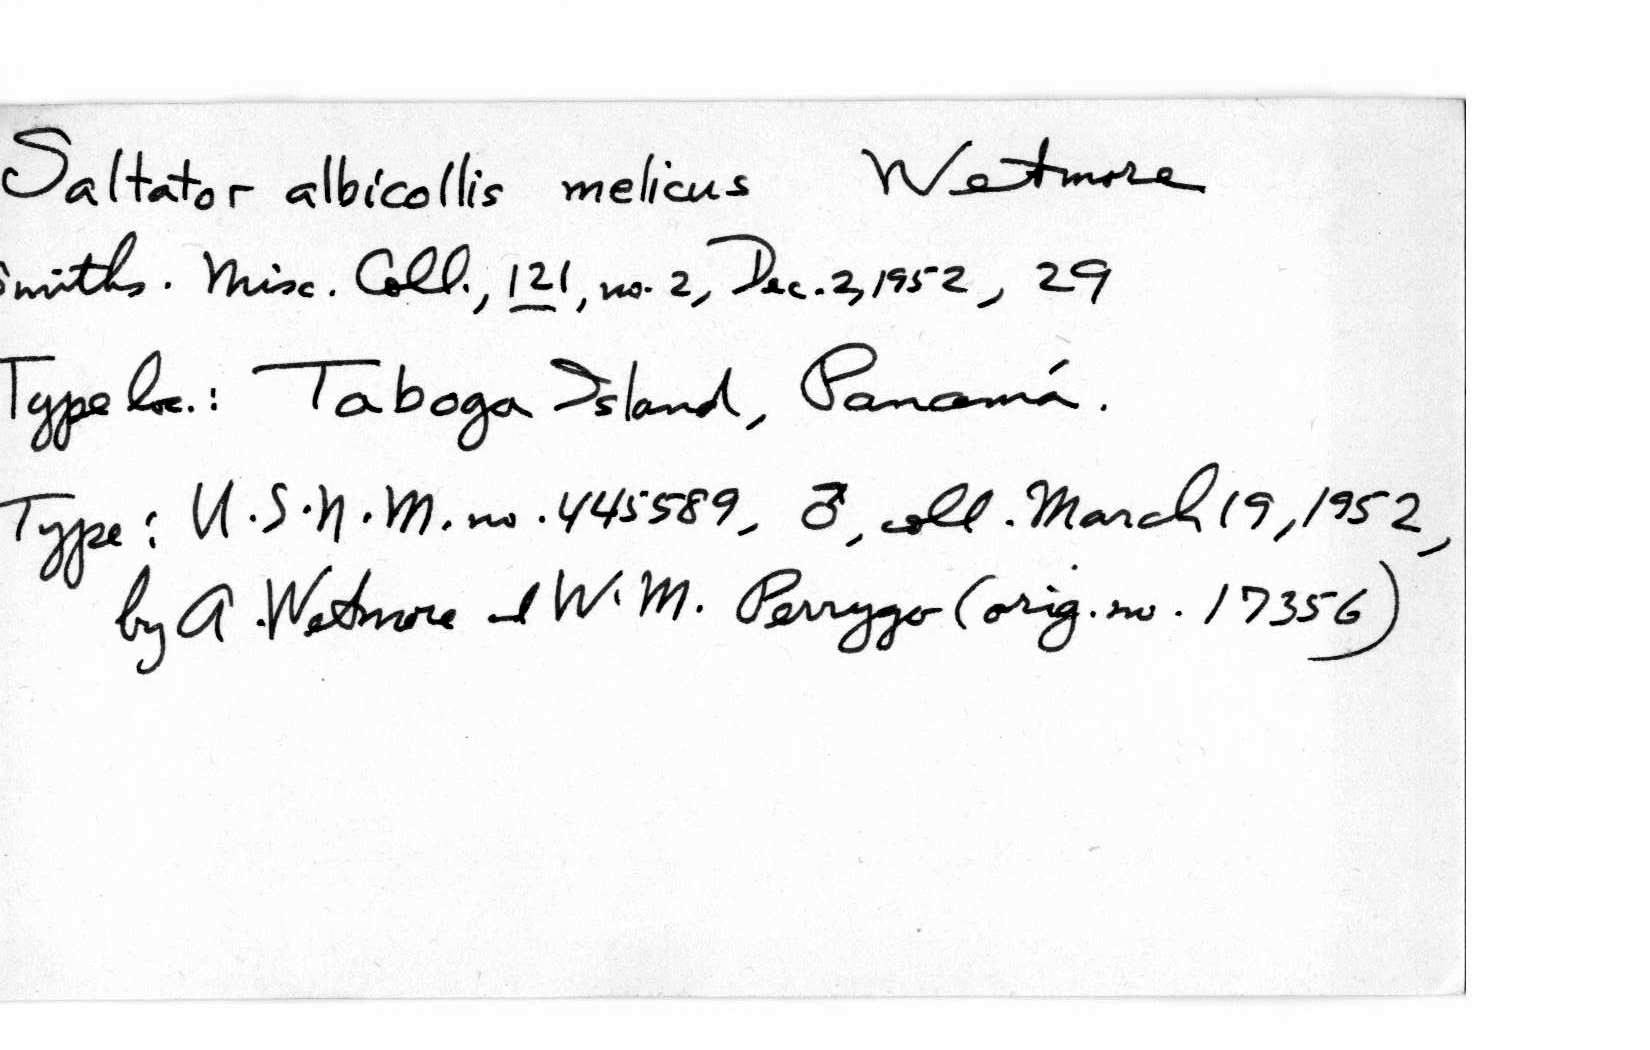 Saltator albicollis melicus Wetmore
Smiths. Misc. Coll., 121, no. 2, Dec. 2, 1952, 29
Type loc.: Taboga Island, Panamá.
Type: U.S.N.M. no. 445589, ♂, coll. March 19, 1952,
by A. Wetmore and W. M. Perrygo (orig. no. 17356)